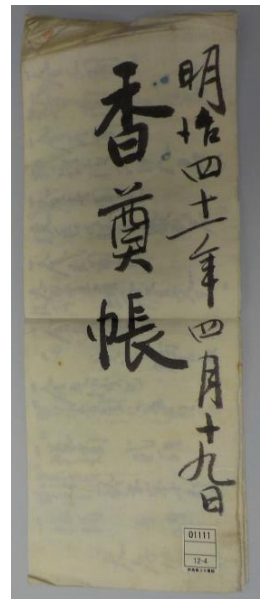 明治四十一年四月十九日
香奠帳
01111
12-4